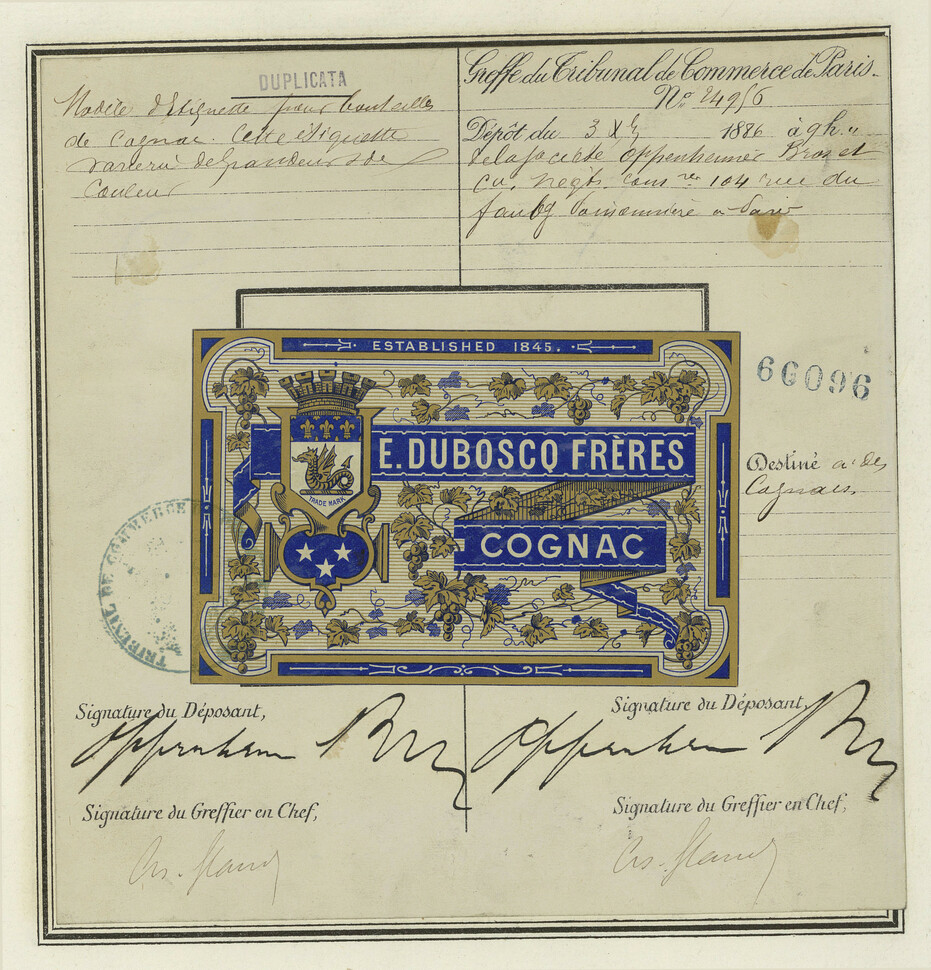 DUPLICATA
Modèle d'Etiquette pour bouteilles
de Cognac. Cette étiquette
variera de grandeur & de
Couleur
Greffe du Tribunal de Commerce de Paris.
No. 24956
Dépôt du 3 Xbre 1886 à 9h.
de la société Oppenheimer Bros et
Co. Negts. 104 rue du
faubg Poissonnière à Paris
ESTABLISHED 1845.
E. DUBOSCQ FRÈRES
TRADE MARK
COGNAC
66096
Destiné à des
Cognacs
TRIBUNAL DE COMMERCE
Signature du Déposant,
Signature du Déposant,
Signature du Greffier en Chef,
Signature du Greffier en Chef,